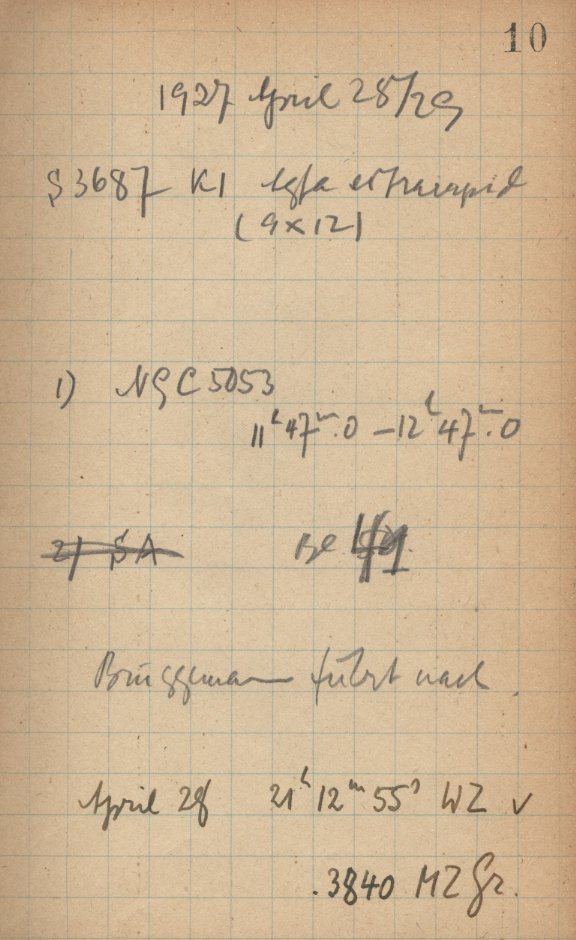 10
1927 April 28/29
S 3687 K1 Agfa extrarapid
(9x12)
1) NGC 5053
11ʰ 47ᵐ.0 – 12ʰ 47ᵐ.0
2) SA Be
Brüggemann führt nach
April 28 21ʰ 12ᵐ 55ˢ WZ ✓
.3840 MZ Gr.